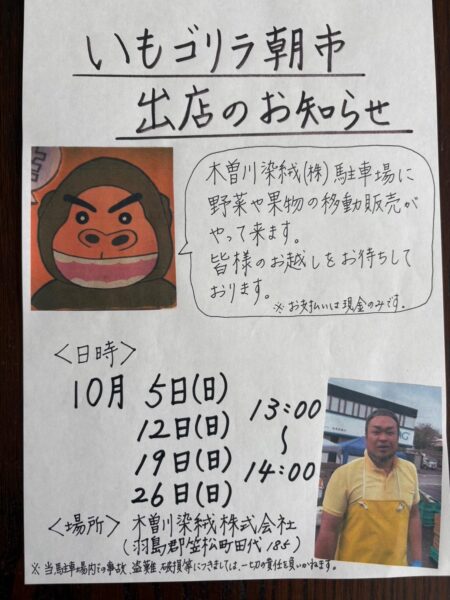 いもゴリラ朝市
出店のお知らせ
木曽川染絨(株)駐車場に
野菜や果物の移動販売が
やって来ます。
皆様のお越しをお待ちして
おります。
※お支払いは現金のみです。
〈日時〉
10月 5日(日)
12日(日)
19日(日)
26日(日)
13:00
〜
14:00
〈場所〉木曽川染絨株式会社
(羽島郡笠松町田代185)
※当駐車場内での事故、盗難、破損等につきましては、一切の責任を負いかねます。